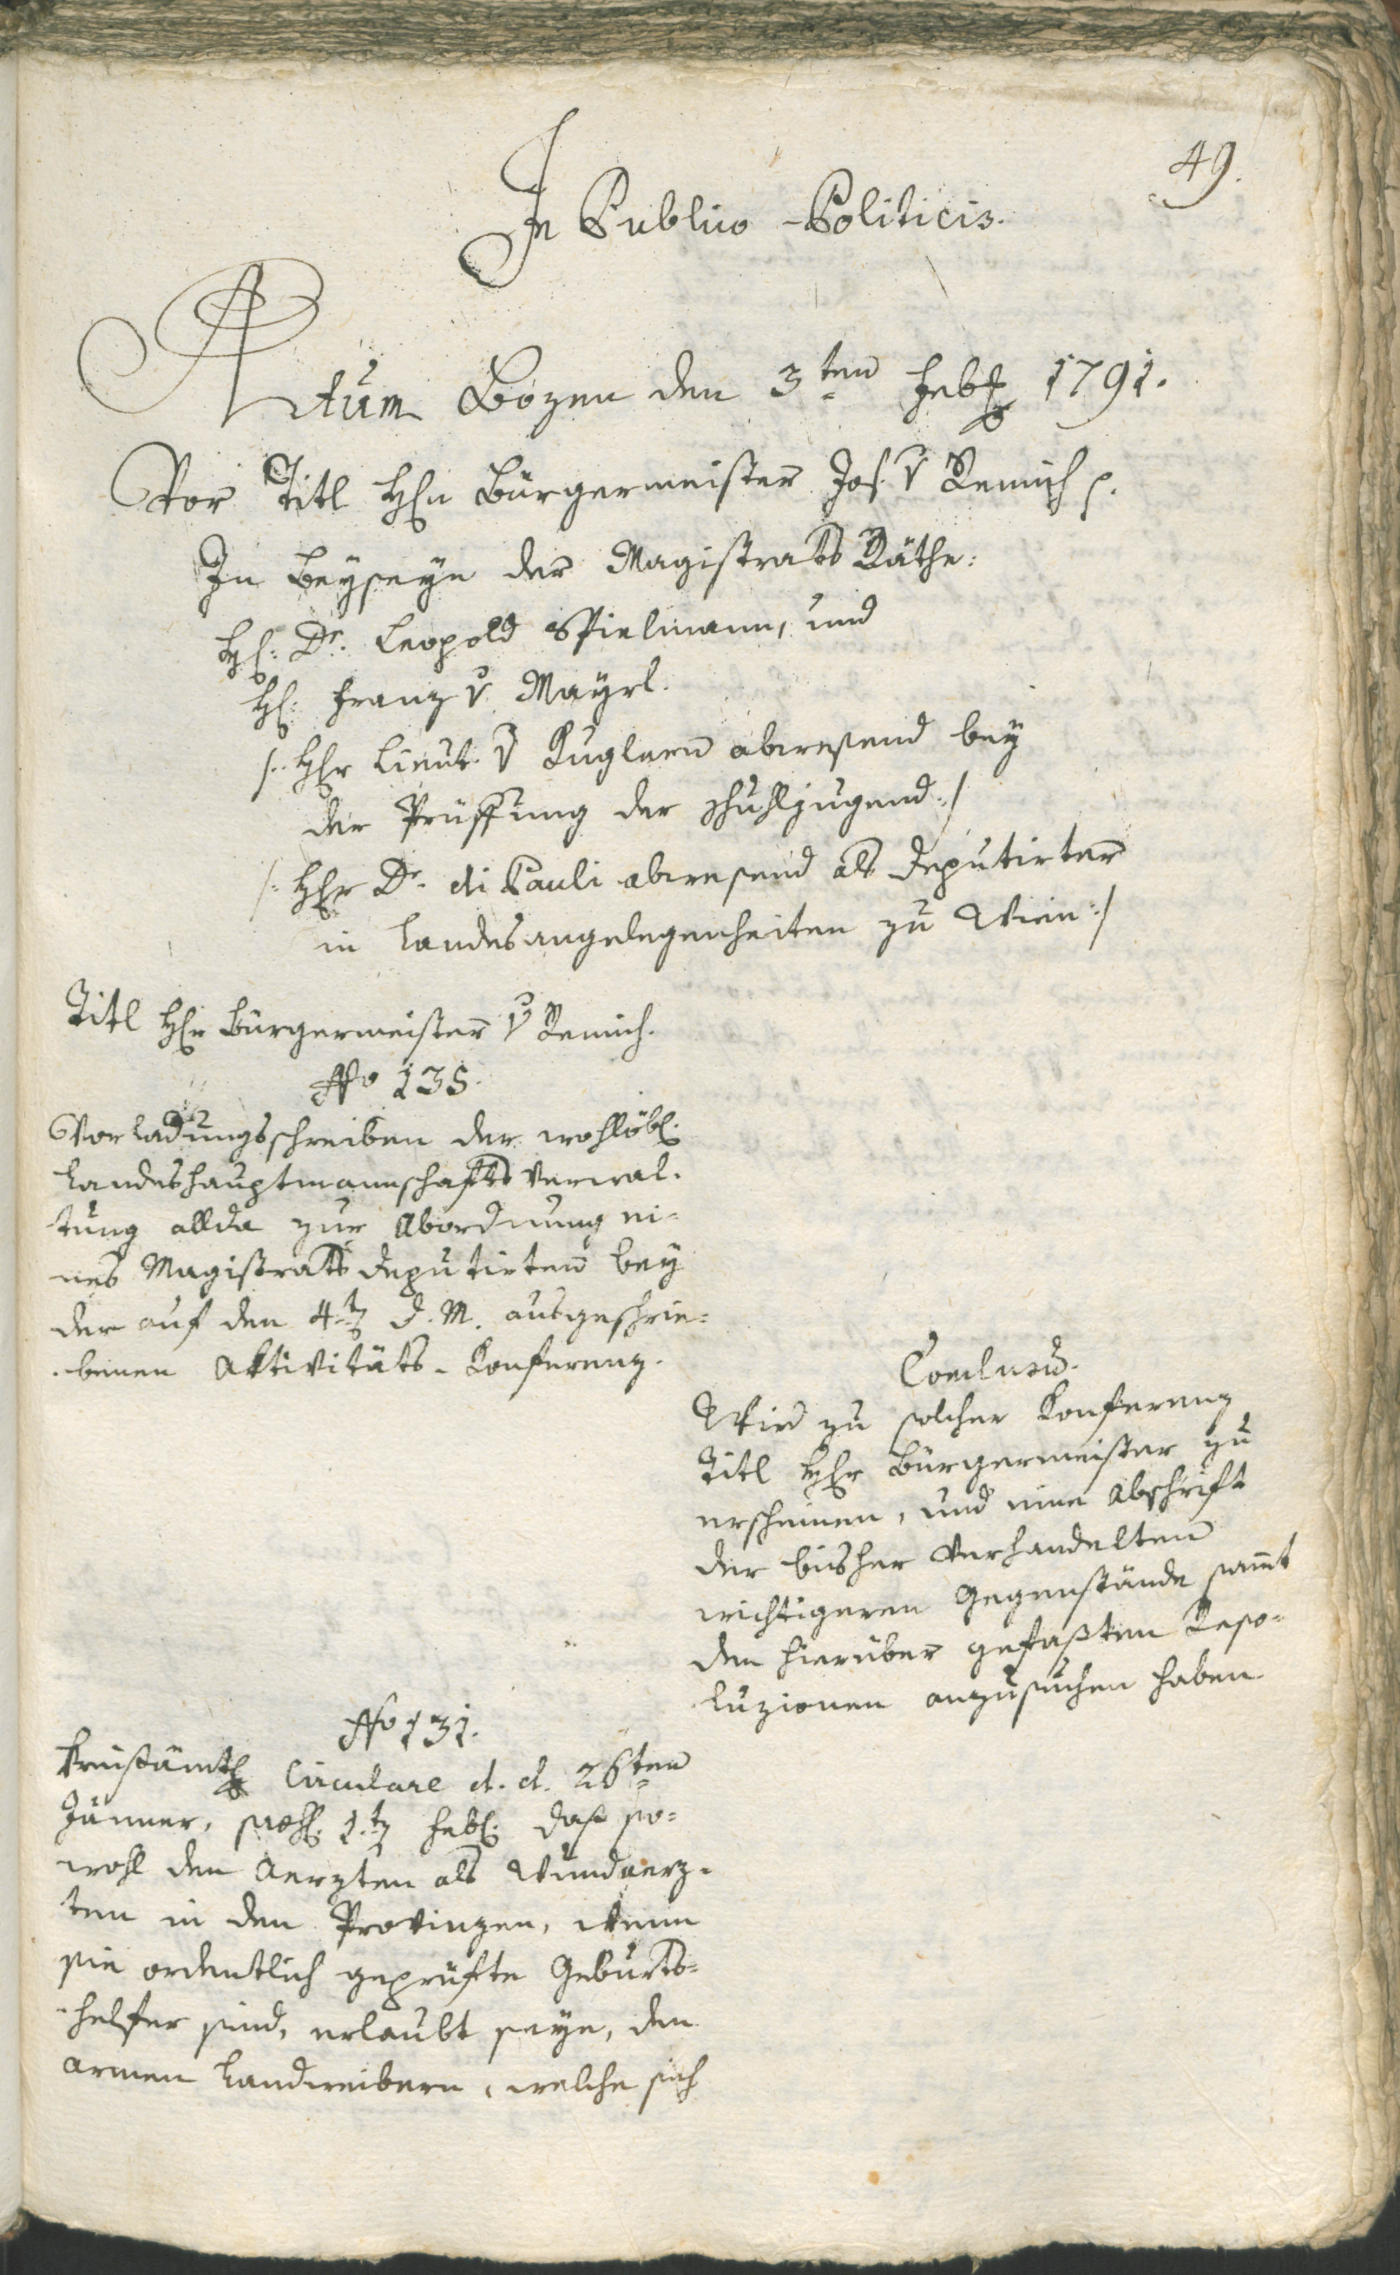 49.
In Publico-Politicis.
Actum Bozen den 3ten Feb. 1791.
Vor Titl Hrn Bürgermeister Jos. v Remich p.
In Beyseyn der Magistrats Räthe:
Hr: Dr. Leopold Spielmann, und
Hr: Franz v. Mayrl.
/: Hr Lieut. v Kuglern abwesend bey
der Prüffung der Schuhljugend :/
/: Hr Dr. di Pauli abwesend als Deputirter
in Landesangelegenheiten zu Wien :/
Titl Hr Bürgermeister v Remich.
No 135.
Vorladungsschreiben der wohllöbl.
Landeshauptmannschafts Verwal-
tung allda zur Abordnung ei-
nes Magistrats Deputirten bey
der auf den 4t d. M. ausgeschrie-
benen Aktivitäts-Konferenz.
Conclusum.
Wird zu solcher Konferenz
Titl Hr Bürgermeister zu
erscheinen, und eine Abschrift
der bisher verhandelten
wichtigeren Gegenstände sammt
den hierüber gefaßten Reso-
luzionen anzusuchen haben.
No 131.
Kreisämtl Circulare d. d. 26ten
Jänner, 1t Feb. daß so-
wohl den Aerzten als Wundaerz-
ten in den Provinzen, wenn
sie ordentlich geprüfte Geburts-
helfer sind, erlaubt seye, den
armen Landweibern, welche sich